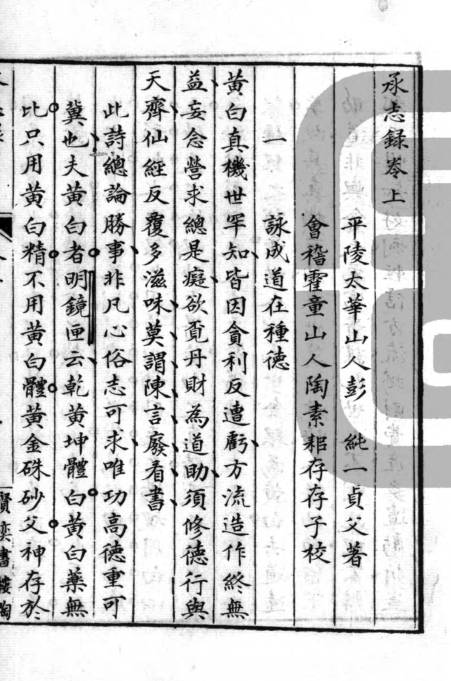 承志録卷上
平陵太華山人彭 純一貞父著
會稽霍童山人陶素耜存存子校
一 詠成道在種德
黄白真機世罕知皆因貪利反遭虧方流造作終無
益妄念營求總是癡欲覔丹財為道助須修德行與
天齊仙經反覆多滋味莫謂陳言廢看書
此詩總論勝事非凡心俗志可求唯功高德重可
冀也夫黄白者明鏡匣云乾黄坤體白黄白藥無
比只用黄白精不用黄白體黄金硃砂父神存於